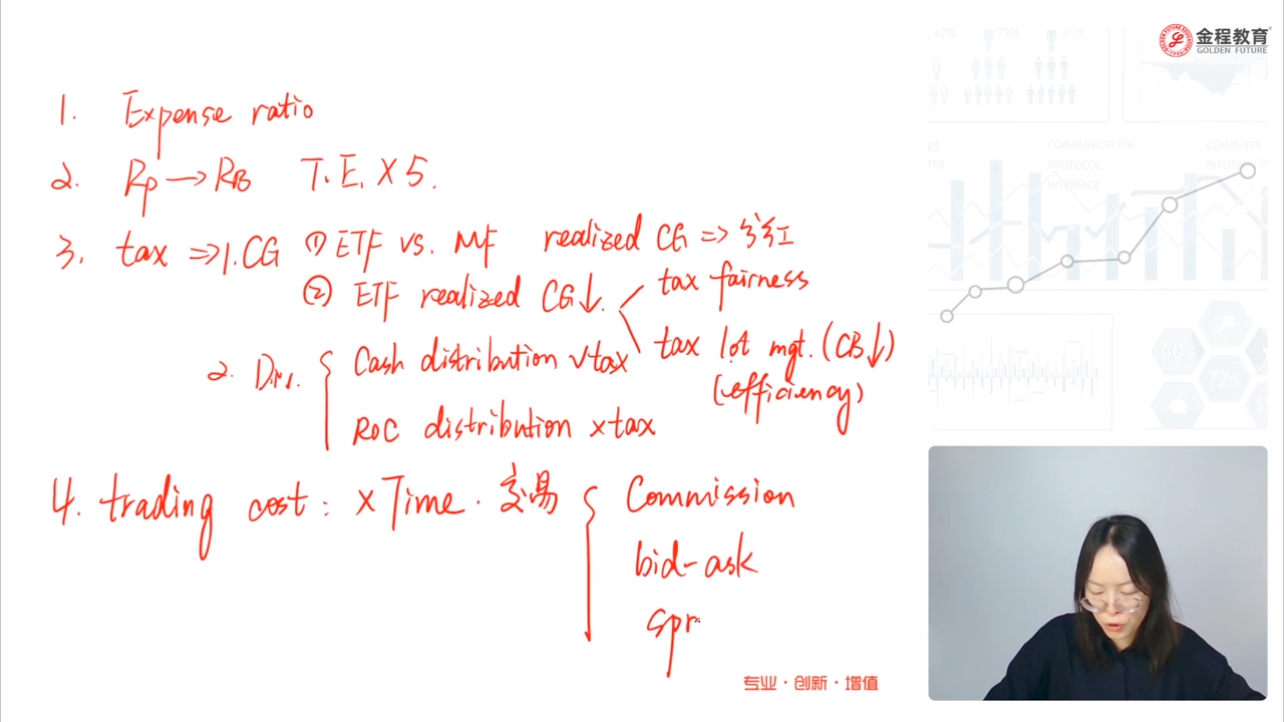 金程教育
GOLDEN FUTURE
1. Expense ratio
2. Rp → RB T.E. × 5.
3. tax ⇒ 1. CG ① ETF vs. MF realized CG ⇒ 分红
② ETF realized CG↓.
tax fairness
tax lot mgt. (CB↓)
(efficiency)
2. Div. { Cash distribution √tax
ROC distribution ×tax
4. trading cost: × Time. 交易 { Commission
bid-ask
spr
专业·创新·增值
47%
73%
COMMUNICATION
PROTOCOL
INTERFACE
40%